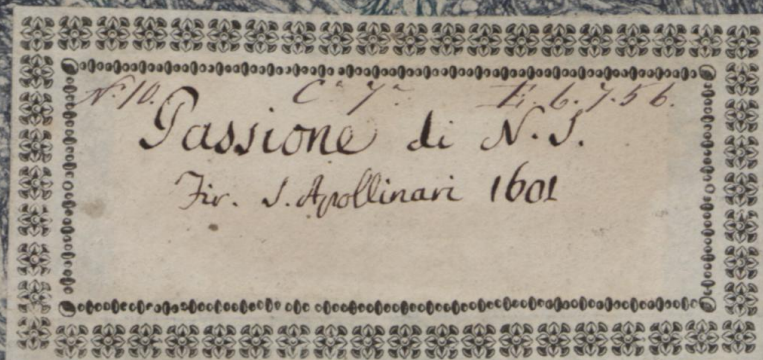 N.° 10. C.° 7.° E. 6. 7. 56.
Passione di N. S.
Fir. S. Apollinari 1601